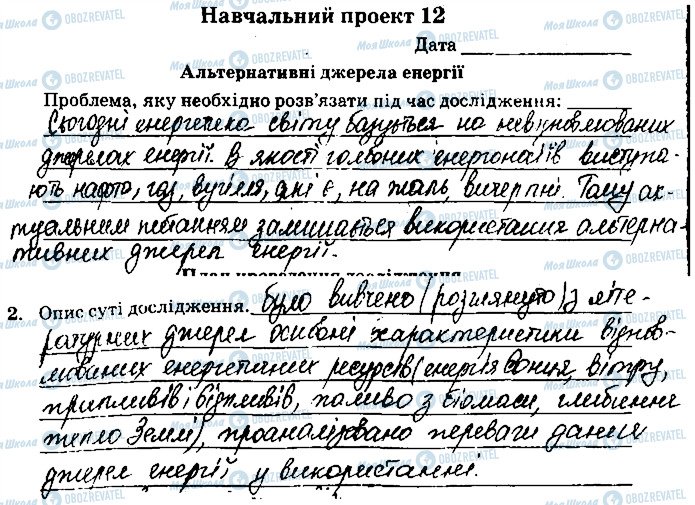 Навчальний проект 12
Дата
Альтернативні джерела енергії
Проблема, яку необхідно розв'язати під час дослідження:
Сьогодні енергетика світу базується на невідновлюваних
джерелах енергії. В якості головних енергоносіїв виступа-
ють нафта, газ, вугілля, які є, на жаль, вичерпні. Тому ак-
туальним питанням залишається використання альтерна-
тивних джерел енергії.
План проведення дослідження
2. Опис суті дослідження. було вивчено (розглянуто) з літе-
ратурних джерел основні характеристики віднов-
лювальних енергетичних ресурсів (енергія Сонця, вітру,
припливів і відпливів, паливо з біомаси, глибинне
тепло Землі), проаналізовано переваги даних
джерел енергії у використанні.